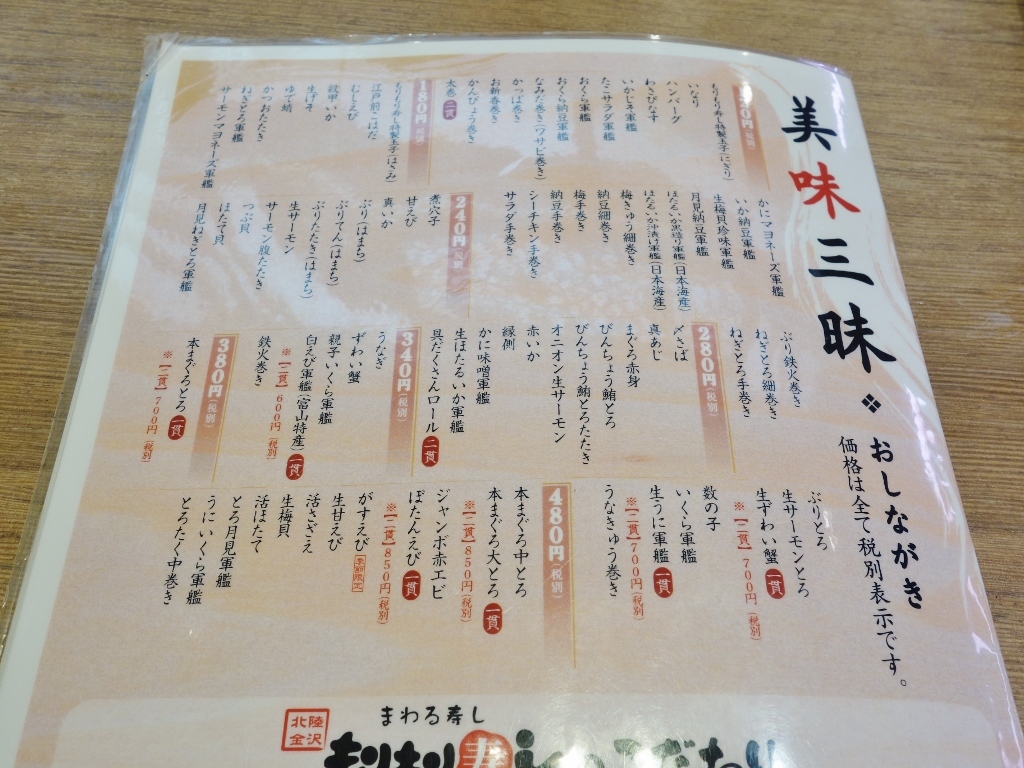 美味三昧 ❖ おしながき
価格は全て税別表示です。
もりもり寿し特製玉子(にぎり)
いなり
ハンバーグ
わさびなす
いかしそ軍艦
たこサラダ軍艦
おくら軍艦
おくら納豆軍艦
なみだ巻き(ワサビ巻き)
かっぱ巻き
お新香巻き
かんぴょう巻き
太巻 二貫
180円(税別)
もりもり寿し特製玉子(はさみ)
江戸前こはだ
むしえび
紋甲いか
生げそ
ゆで蛸
かつおたたき
ねぎとろ軍艦
サーモンマヨネーズ軍艦
かにマヨネーズ軍艦
いか納豆軍艦
生梅貝珍味軍艦
月見納豆軍艦
ほたるいか黒造り軍艦(日本海産)
ほたるいか沖漬け軍艦(日本海産)
梅きゅう細巻き
納豆細巻き
梅手巻き
納豆手巻き
シーチキン手巻き
サラダ手巻き
240円(税別)
煮穴子
甘えび
真いか
ぶり(はまち)
ぶりてん(はまち)
ぶりたたき(はまち)
生サーモン
サーモン腹たたき
つぶ貝
ほたて貝
月見ねぎとろ軍艦
ぶり鉄火巻き
ねぎとろ細巻き
ねぎとろ手巻き
280円(税別)
〆さば
真あじ
まぐろ赤身
びんちょう鮪とろ
びんちょう鮪とろたたき
オニオン生サーモン
赤いか
縁側
かに味噌軍艦
生ほたるいか軍艦
具だくさんロール 二貫
340円(税別)
うなぎ
ずわい蟹
親子いくら軍艦
白えび軍艦(富山特産) 一貫
※【二貫】600円(税別)
鉄火巻き
380円(税別)
本まぐろとろ 一貫
※【二貫】700円(税別)
ぶりとろ
生サーモンとろ
生ずわい蟹 一貫
※【二貫】700円(税別)
数の子
いくら軍艦
生うに軍艦 一貫
※【二貫】700円(税別)
うなきゅう巻き
480円(税別)
本まぐろ中とろ
本まぐろ大とろ 一貫
※【二貫】850円(税別)
ジャンボ赤エビ
ぼたんえび 一貫
※【二貫】850円(税別)
がすえび 季節限定
生甘えび
活さざえ
生梅貝
活ほたて
とろ月見軍艦
うにいくら軍艦
とろたく中巻き
北陸
金沢
まわる寿し